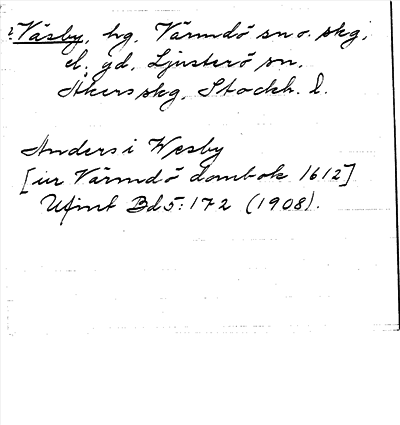 ? Väsby, hg, Värmdö sn o. skg,
el. gd, Ljusterö sn,
Åkers skg, Stockh. l.
Anders i Wesby
[ur Värmdö dombok 1612]
Ufmt Bd 5:172 (1908).